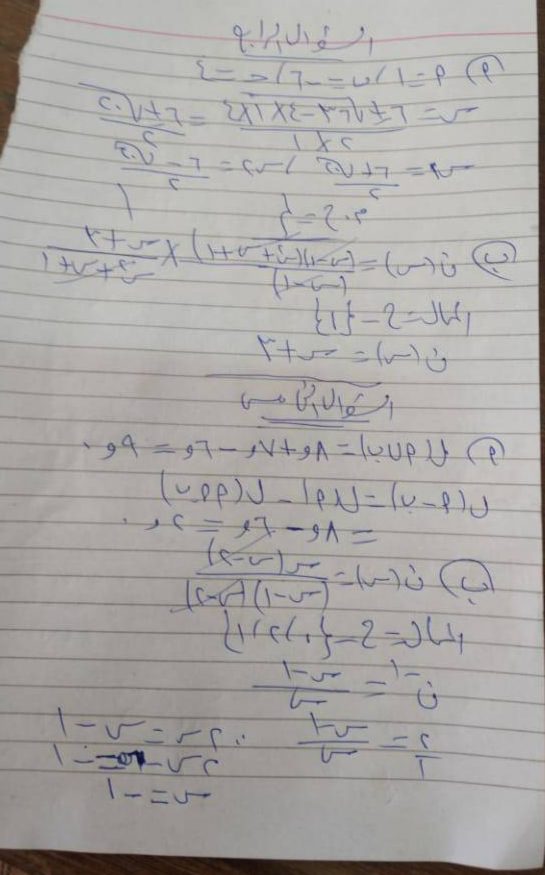 السؤال الرابع
(أ) أ = ١ ، ب = -٦ ، ج = ٤
س = (٦ ± √(٣٦ - ٤×١×٤)) / (٢×١) = (٦ ± √٢٠) / ٢
س = (٦ + √٢٠) / ٢ ، س = (٦ - √٢٠) / ٢
م.ح = { }
(ب) ن(س) = (س-١)(س٢+س+١) / (س-١) × (س+٣) / (س٢+س+١)
المجال = ح - {١}
ن(س) = س+٣
السؤال الخامس
(أ) ل(أ∪ب) = ٨و + ٧و - ٦و = ٩و٠
ل(أ-ب) = ل(أ) - ل(أ∩ب)
= ٨و - ٦و = ٢و٠
(ب) ن(س) = س(س-٢) / (س-١)(س-٢)
المجال = ح - {٠،٢،١}
ن-١ = (س-١) / س
(س-١) / س = ٢ / ١ ∴ ٢س = س-١
٢س - س = -١
س = -١